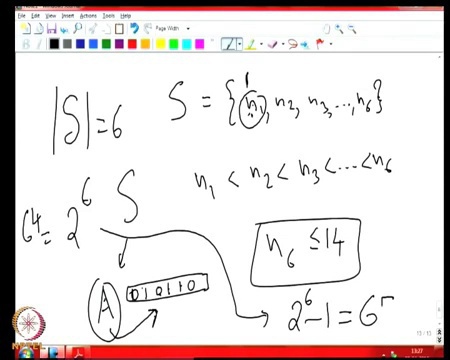 File Edit View Insert Actions Tools Help
Page Width
1
|S| = 6 S = {n₁, n₂, n₃, ..., n₆}
n₁ < n₂ < n₃ < ... < n₆
64 = 2⁶ S
n₆ ≤ 14
A 010110
2⁶ - 1 = 6
15 / 15
13:27